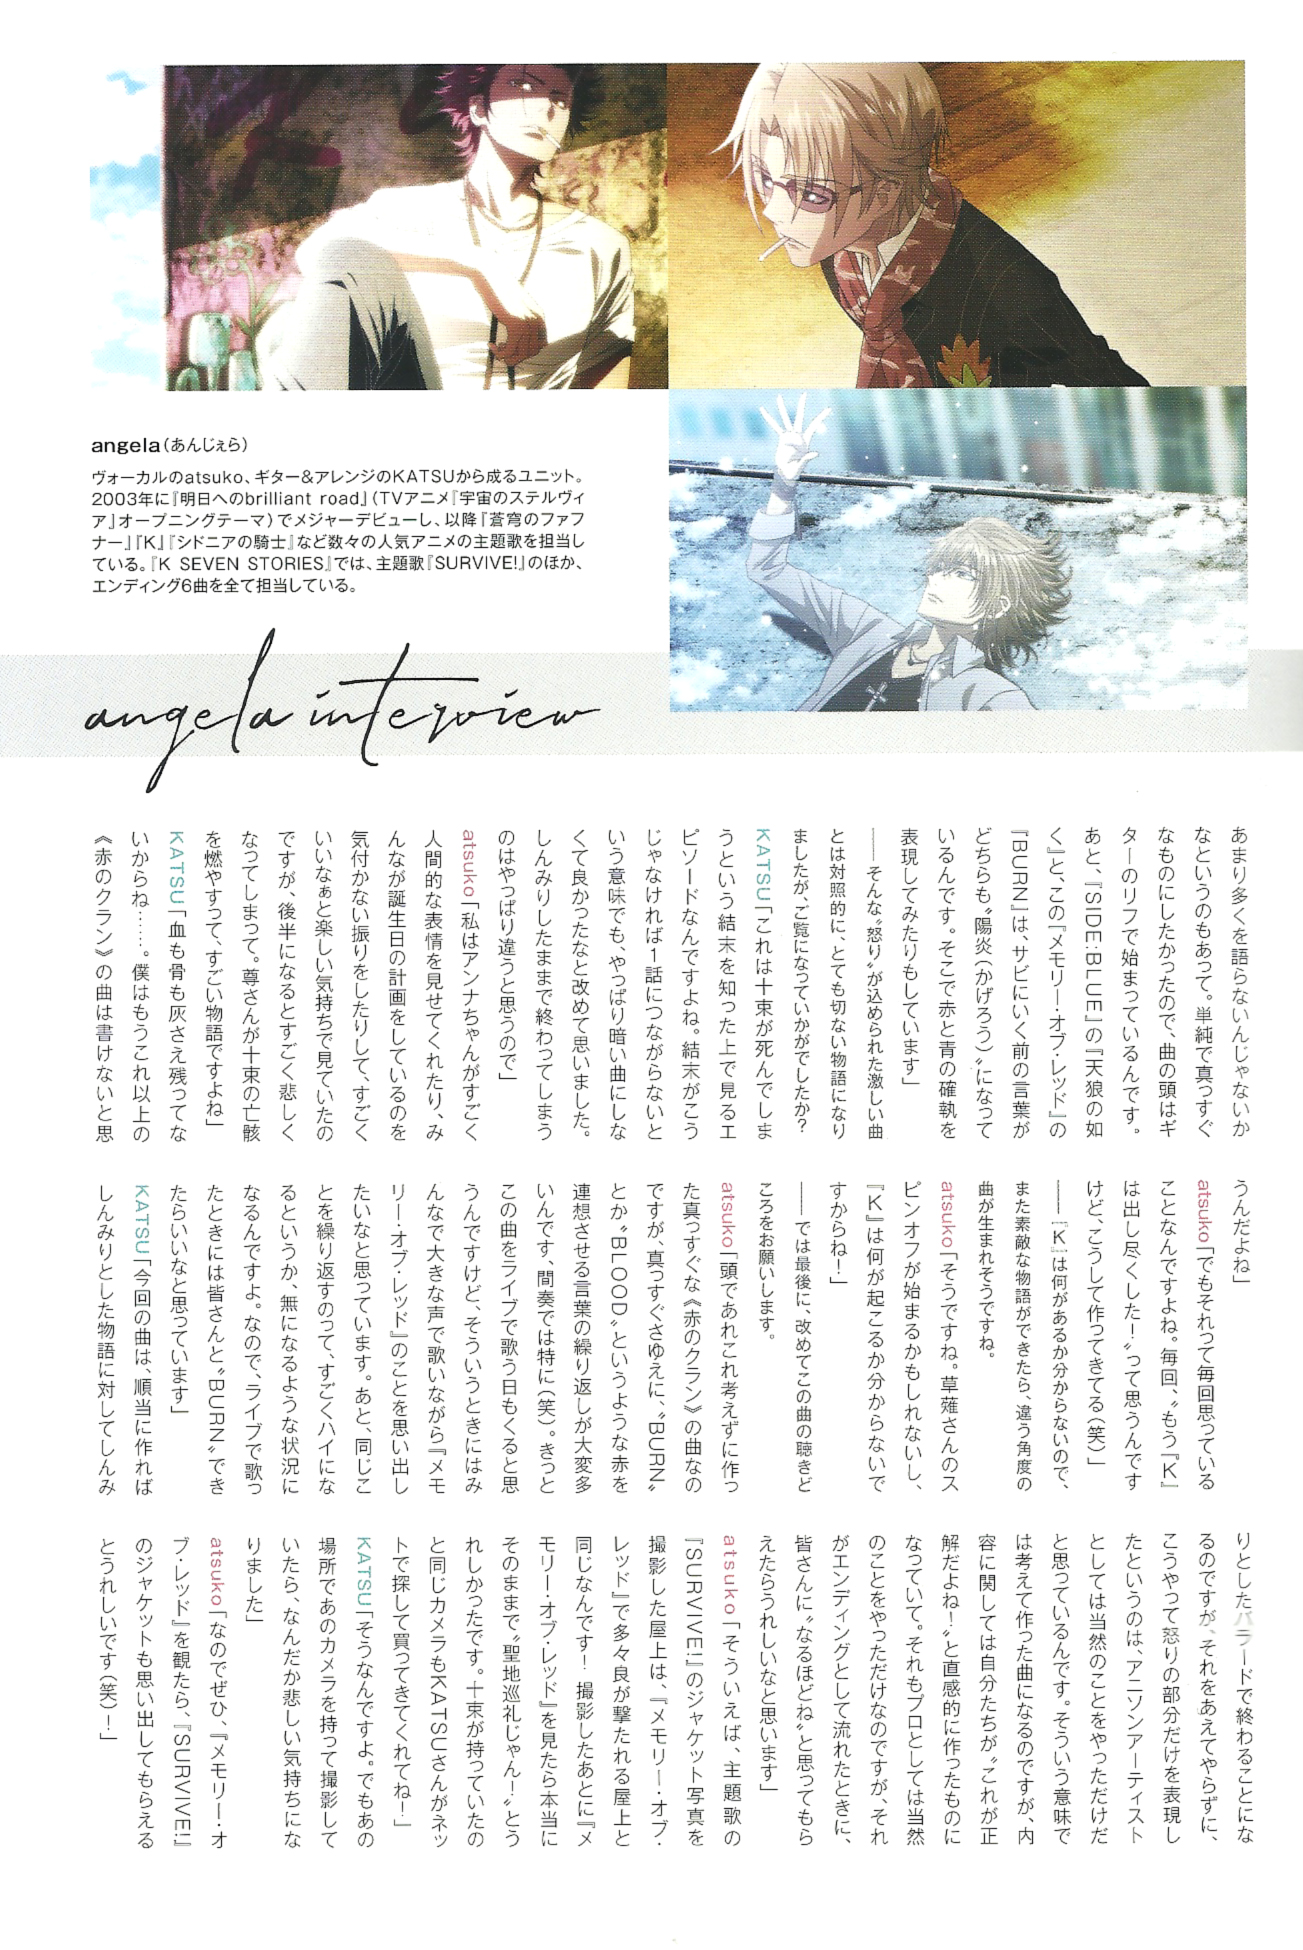 angela(あんじぇら)
ヴォーカルのatsuko、ギター&アレンジのKATSUから成るユニット。
2003年に『明日へのbrilliant road』(TVアニメ『宇宙のステルヴィ
ア』オープニングテーマ)でメジャーデビューし、以降『蒼穹のファフ
ナー』『K』『シドニアの騎士』など数々の人気アニメの主題歌を担当し
ている。『K SEVEN STORIES』では、主題歌『SURVIVE!』のほか、
エンディング6曲を全て担当している。
angela interview
あまり多くを語らないんじゃないか
なというのもあって。単純で真っすぐ
なものにしたかったので、曲の頭はギ
ターのリフで始まっているんです。
あと、『SIDE:BLUE』の『天狼の如
く』と、この『メモリー・オブ・レッド』の
『BURN』は、サビにいく前の言葉が
どちらも〝陽炎(かげろう)〟になって
いるんです。そこで赤と青の確執を
表現してみたりもしています」
――そんな〝怒り〟が込められた激しい曲
とは対照的に、とても切ない物語になり
ましたが、ご覧になっていかがでしたか?
KATSU「これは十束が死んでしま
うという結末を知った上で見るエ
ピソードなんですよね。結末がこう
じゃなければ1話につながらないと
いう意味でも、やっぱり暗い曲にしな
くて良かったなと改めて思いました。
しんみりしたままで終わってしまう
のはやっぱり違うと思うので」
atsuko「私はアンナちゃんがすごく
人間的な表情を見せてくれたり、み
んなが誕生日の計画をしているのを
気付かない振りをしたりして、すごく
いいなぁと楽しい気持ちで見ていたの
ですが、後半になるとすごく悲しく
なってしまって。尊さんが十束の亡骸
を燃やすって、すごい物語ですよね」
KATSU「血も骨も灰さえ残ってな
いからね……。僕はもうこれ以上の
《赤のクラン》の曲は書けないと思
うんだよね」
atsuko「でもそれって毎回思っている
ことなんですよね。毎回、〝もう『K』
は出し尽くした!〟って思うんです
けど、こうして作ってきてる(笑)」
――『K』は何があるか分からないので、
また素敵な物語ができたら、違う角度の
曲が生まれそうですね。
atsuko「そうですね。草薙さんのス
ピンオフが始まるかもしれないし、
『K』は何が起こるか分からないで
すからね!」
――では最後に、改めてこの曲の聴きど
ころをお願いします。
atsuko「頭であれこれ考えずに作っ
た真っすぐな《赤のクラン》の曲なの
ですが、真っすぐさゆえに、〝BURN〟
とか〝BLOOD〟というような赤を
連想させる言葉の繰り返しが大変多
いんです、間奏では特に(笑)。きっと
この曲をライブで歌う日もくると思
うんですけど、そういうときにはみ
んなで大きな声で歌いながら『メモ
リー・オブ・レッド』のことを思い出し
たいなと思っています。あと、同じこ
とを繰り返すのって、すごくハイにな
るというか、無になるような状況に
なるんですよ。なので、ライブで歌っ
たときには皆さんと〝BURN〟でき
たらいいなと思っています」
KATSU「今回の曲は、順当に作れば
しんみりとした物語に対してしんみ
りとしたバラードで終わることにな
るのですが、それをあえてやらずに、
こうやって怒りの部分だけを表現し
たというのは、アニソンアーティスト
としては当然のことをやっただけだ
と思っているんです。そういう意味で
は考えて作った曲になるのですが、内
容に関しては自分たちが〝これが正
解だよね!〟と直感的に作ったものに
なっていて。それもプロとしては当然
のことをやっただけなのですが、それ
がエンディングとして流れたときに、
皆さんに〝なるほどね〟と思ってもら
えたらうれしいなと思います」
atsuko「そういえば、主題歌の
『SURVIVE!』のジャケット写真を
撮影した屋上は、『メモリー・オブ・
レッド』で多々良が撃たれる屋上と
同じなんです! 撮影したあとに『メ
モリー・オブ・レッド』を見たら本当に
そのままで〝聖地巡礼じゃん!〟とう
れしかったです。十束が持っていたの
と同じカメラもKATSUさんがネッ
トで探して買ってきてくれてね!」
KATSU「そうなんですよ。でもあの
場所であのカメラを持って撮影して
いたら、なんだか悲しい気持ちにな
りました」
atsuko「なのでぜひ、『メモリー・オ
ブ・レッド』を観たら、『SURVIVE!』
のジャケットも思い出してもらえる
とうれしいです(笑)!」